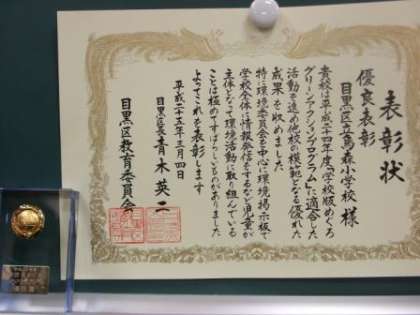 表彰状
優良表彰
目黒区立烏森小学校 様
貴校は平成二十四年度「学校版めぐろ
グリーンアクションプログラム」に適合した
活動を進め他校の模範となる優れた
成果を収めました
特に環境委員会を中心に環境掲示板で
学校全体に情報発信をするなど児童が
主体となって環境活動に取り組んでいる
ことは極めてすばらしいものがありました
よってこれを表彰します
平成二十五年三月四日
目黒区長 青木英二
目黒区教育委員会